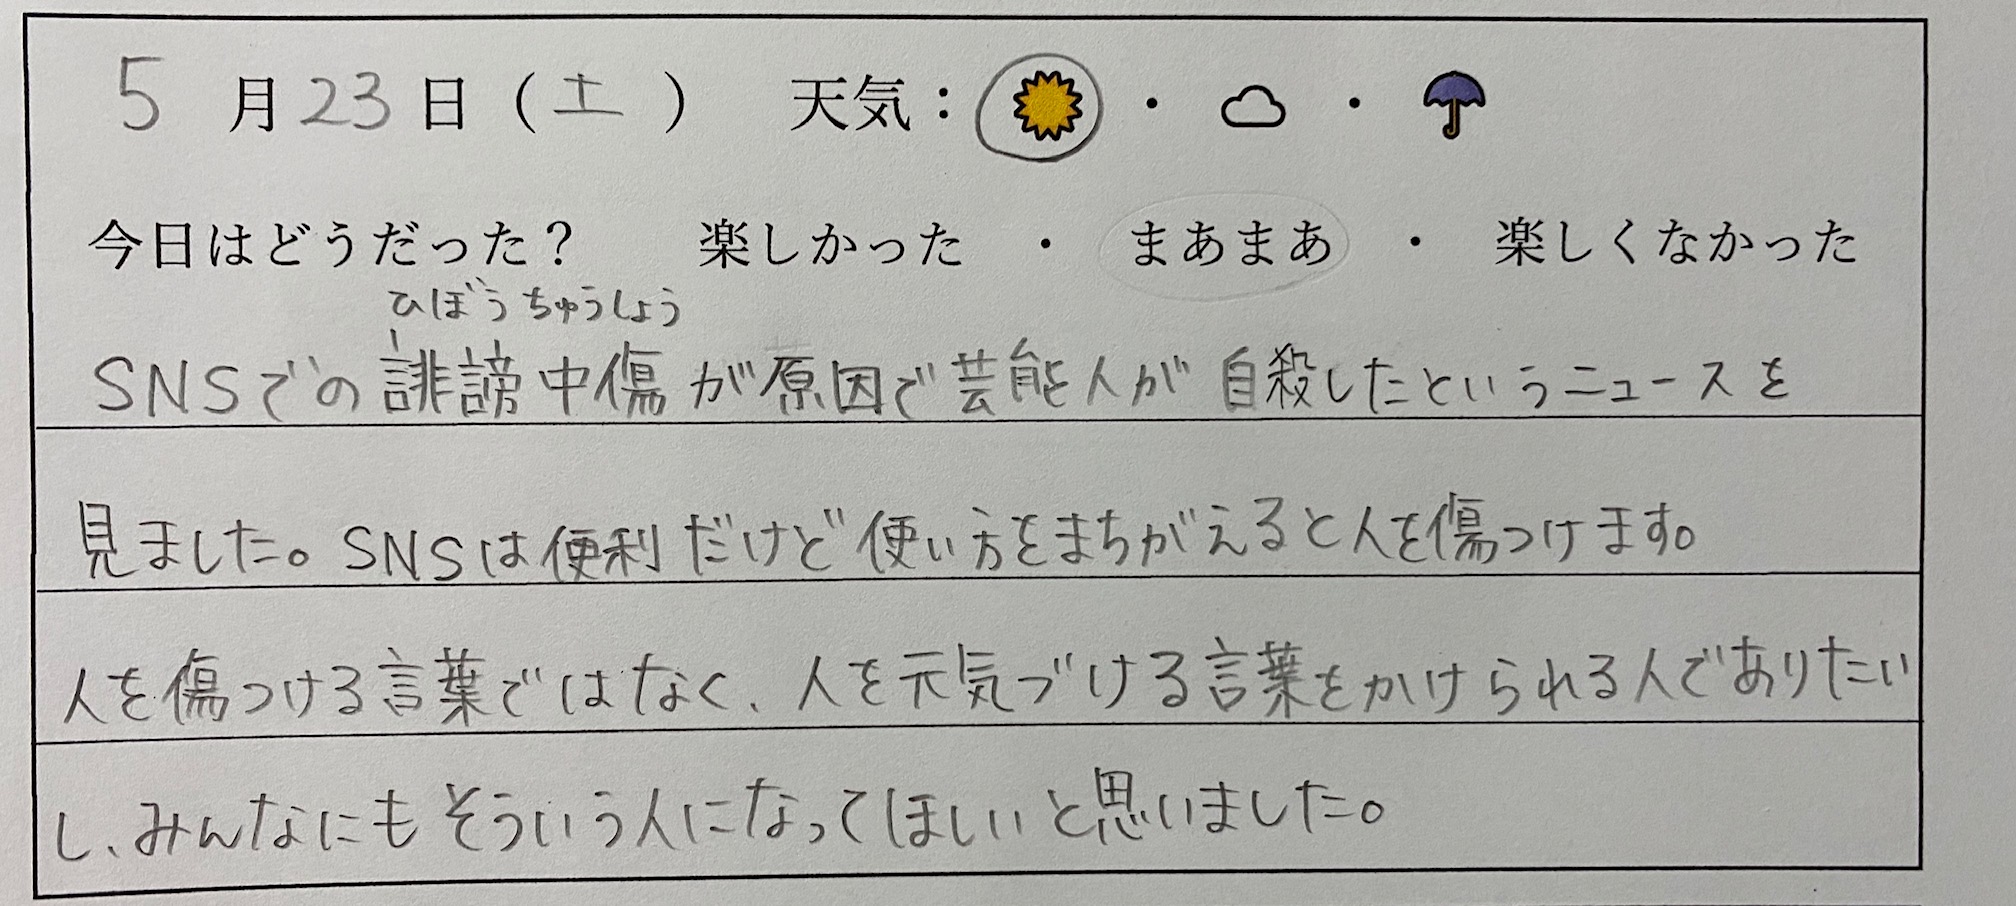 5月23日（土） 天気：・・
今日はどうだった？ 楽しかった ・ まあまあ ・ 楽しくなかった
ひぼうちゅうしょう
SNSでの誹謗中傷が原因で芸能人が自殺したというニュースを
見ました。SNSは便利だけど使い方をまちがえると人を傷つけます。
人を傷つける言葉ではなく、人を元気づける言葉をかけられる人でありたい
し、みんなにもそういう人になってほしいと思いました。